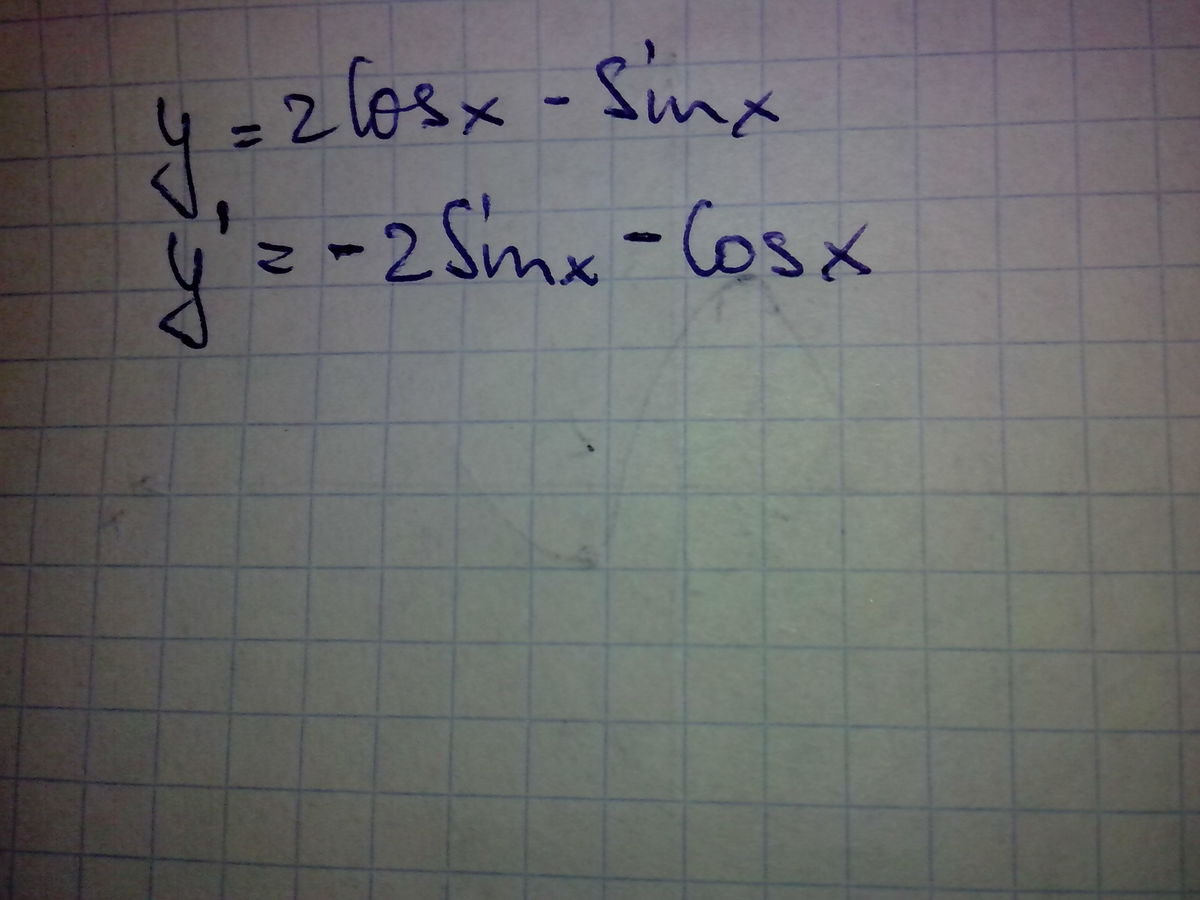 y = 2 Cos x - Sin x
y' = -2 Sin x - Cos x